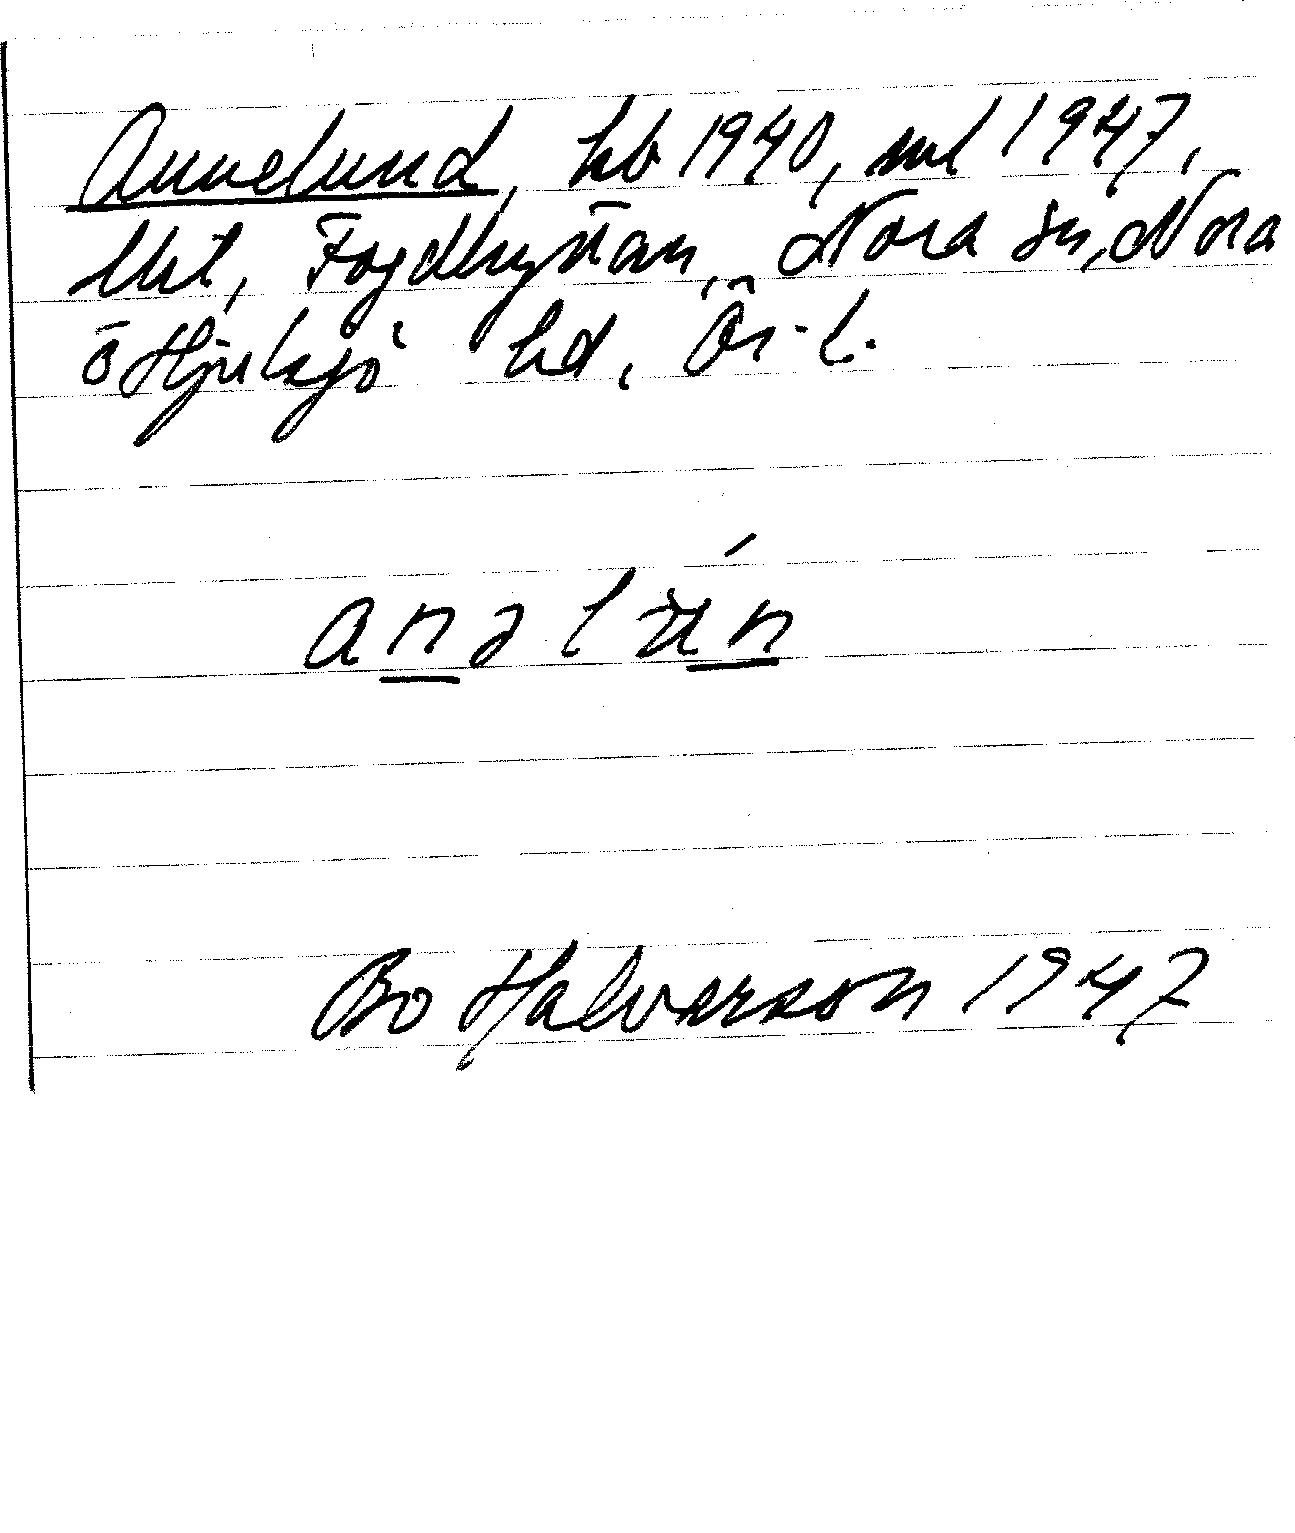 Annelund, kb 1940, ml 1947,
lht, Fogdhyttan, Nora sn, Nora
o Hjulsjö hd, Ör. l.
anəlún
Bo Halvarson 1947